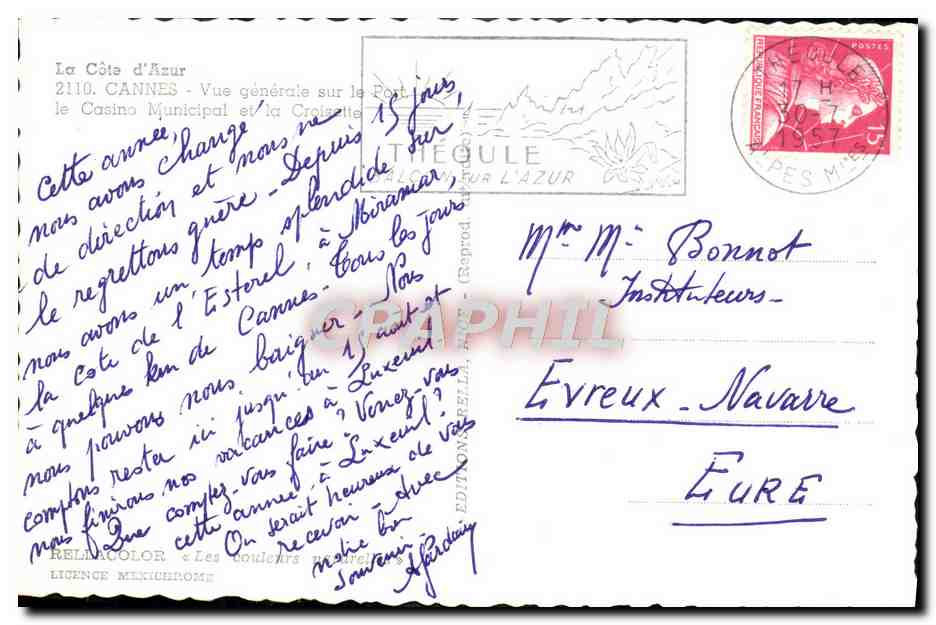 La Côte d'Azur
2110. CANNES - Vue générale sur le Port
le Casino Municipal et la Croisette
Cette année,
nous avons changé
de direction et nous ne
le regrettons guère - Depuis 15 jours,
nous avons un temps splendide sur
la côte de l'Esterel, à Miramar,
à quelques km de Cannes - Tous les jours
nous pouvons nous baigner - Nous
comptons rester ici jusqu'au 15 août et
nous finirons nos vacances à Luxeuil -
Que comptez-vous faire ? Venez-vous
cette année, à Luxeuil ?
On serait heureux de vous
recevoir - Avec
notre bon
souvenir
RELLACOLOR « Les couleurs naturelles »
LICENCE MEXICHROME
EDITIONS RELLA, NICE - (Reprod. interdite)
THEOULE
BALCON SUR L'AZUR
THEOULE
H
30-7
1957
ALPES Mmes
POSTES
REPUBLIQUE FRANÇAISE
15F
Mme Mr Bonnot
Instituteurs -
Evreux - Navarre
EURE
CPAPHIL.com